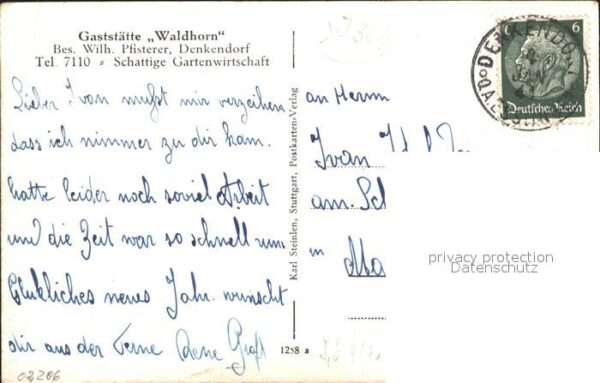 Gaststätte „Waldhorn"
Bes. Wilh. Pfisterer, Denkendorf
Tel. 7110 - Schattige Gartenwirtschaft
Lieber Ivan mußt mir verzeihen
dass ich nimmer zu dir kam.
hatte leider noch soviel Arbeit
und die Zeit war so schnell um
Glükliches neues Jahr wünscht
dir aus der Ferne
02206
Karl Steinlen, Stuttgart, Postkarten-Verlag
1258 a
an Herrn
Ivan
am
in
Ma
DENKENDORF
JAN
6
Deutsches Reich
privacy protection
Datenschutz